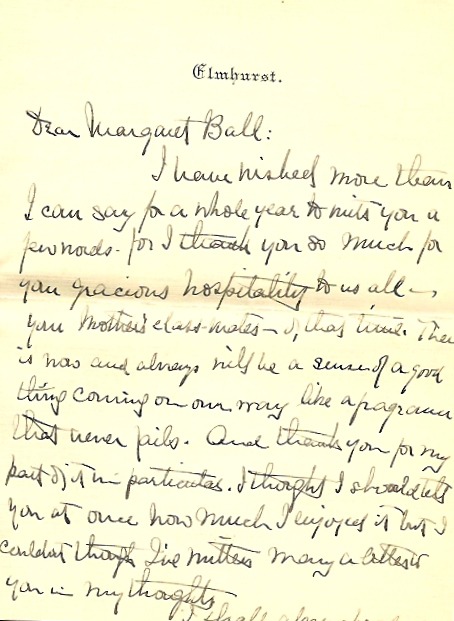 Elmhurst.
Dear Margaret Ball:
I have wished more than
I can say for a whole year to write you a
few words - for I thank you so much for
your gracious hospitality to us all -
your Mother's class-mates - of that time. There
is now and always will be a sense of a good
thing coming on our way like a
that never fails. And thank you for my
part of it in particular. I thought I should tell
you at once how much I enjoyed it but I
couldn't though I've written many a letter to
you in my thoughts
I shall